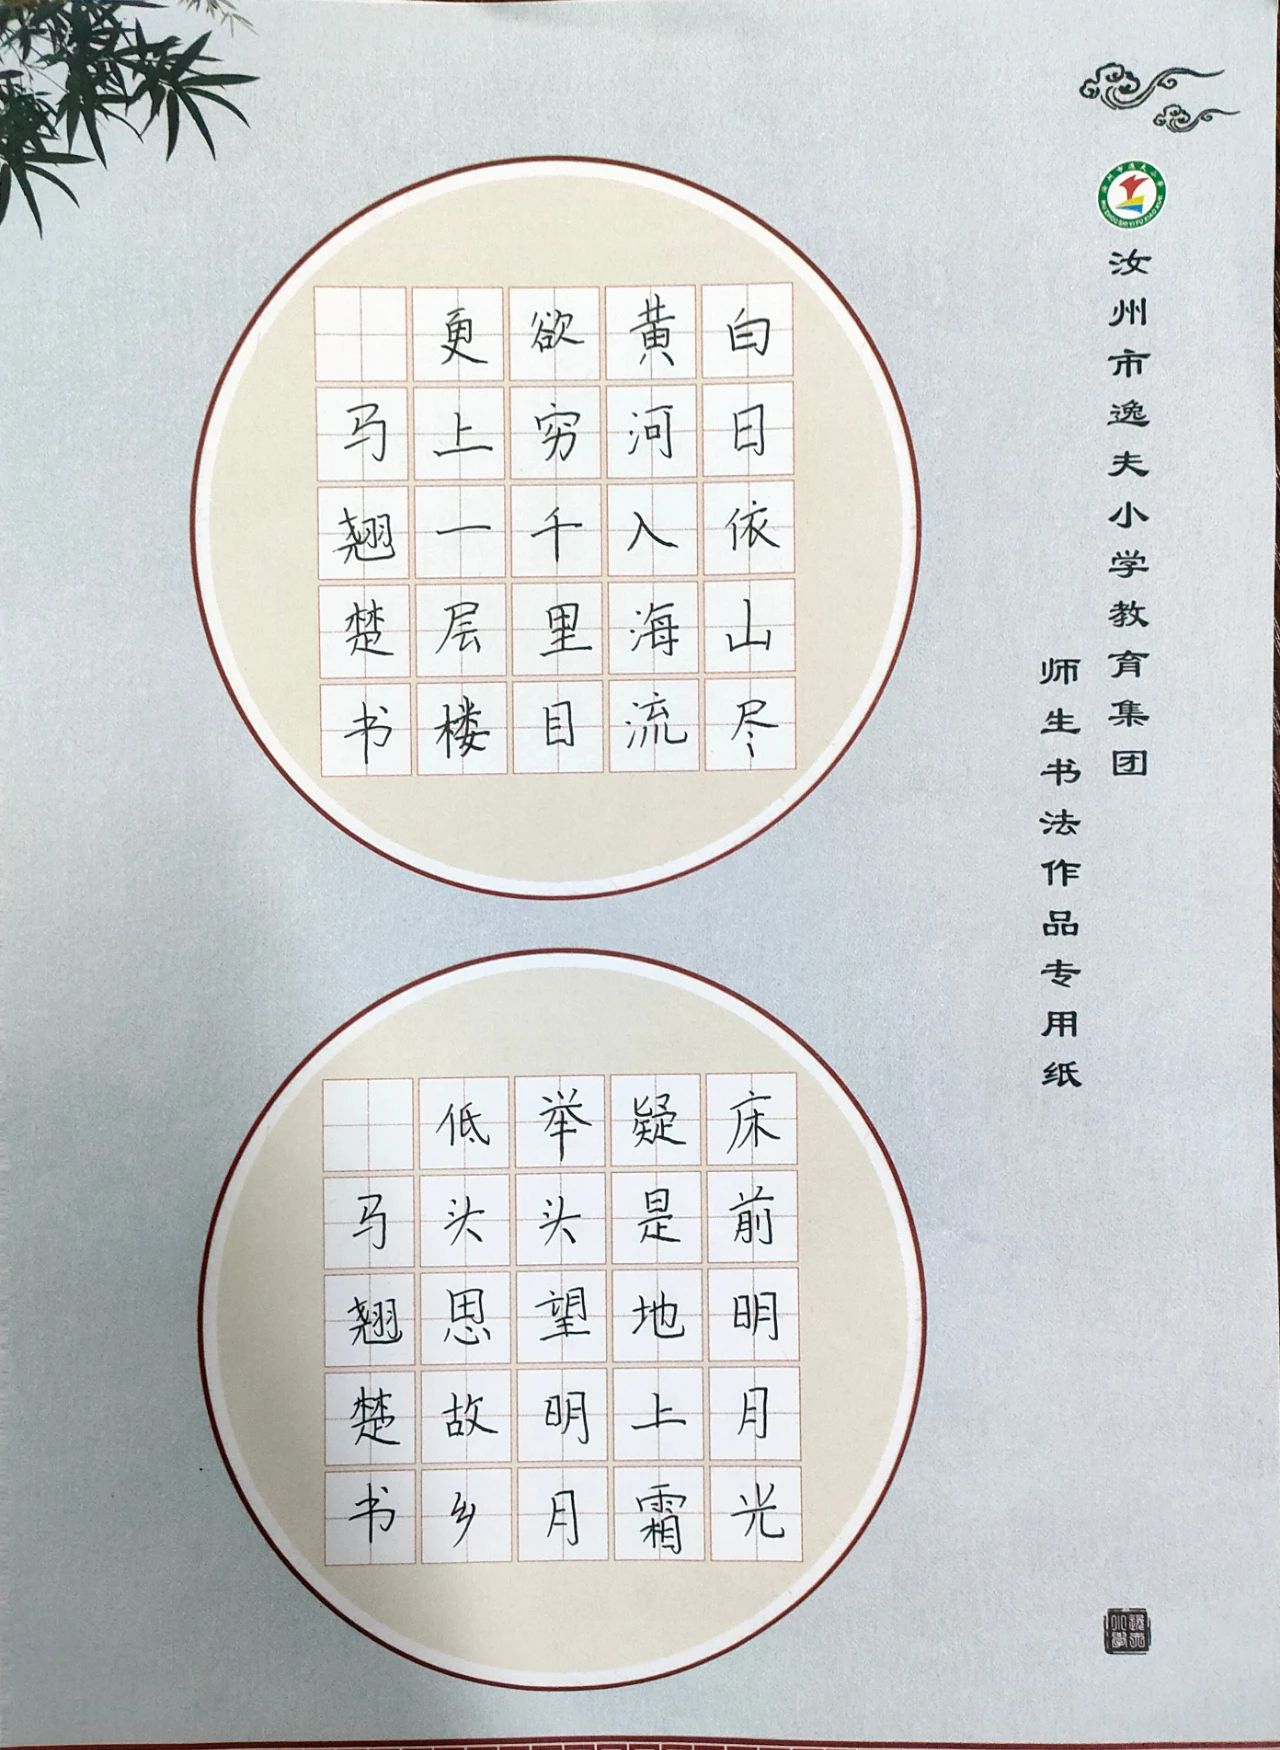 汝州市逸夫小学教育集团
师生书法作品专用纸
白日依山尽
黄河入海流
欲穷千里目
更上一层楼
马翘楚书
床前明月光
疑是地上霜
举头望明月
低头思故乡
马翘楚书